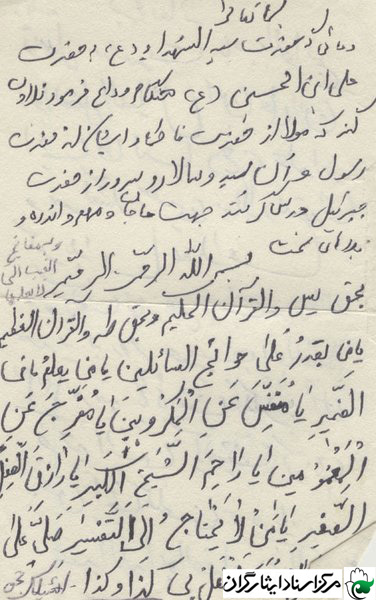 بسمه تعالی
دعائی که حضرت سید الشهداء (ع) به حضرت
علی ابن الحسین (ع) هنگام وداع فرمود تلاوت
کند که مولا از حضرت فاطمه و ایشان از حضرت
رسول و آن سید و سالار و سرور از حضرت
جبرئیل درس گرفتند جهت حاجات و مهم و اندوه و
بلای سخت
بسم الله الرحمن الرحیم
بحق یس والقرآن الحکیم و بحق طه والقرآن العظیم
یا من یقدر علی حوائج السائلین یا من یعلم ما فی
الضمیر یا منفس عن المکروبین یا مفرج عن
المغمومین یا راحم الشیخ الکبیر یا رازق الطفل
الصغیر یا من لا یحتاج الی التفسیر صل علی
وافعل بی کذا و کذا
مرکز اسناد ایثارگران